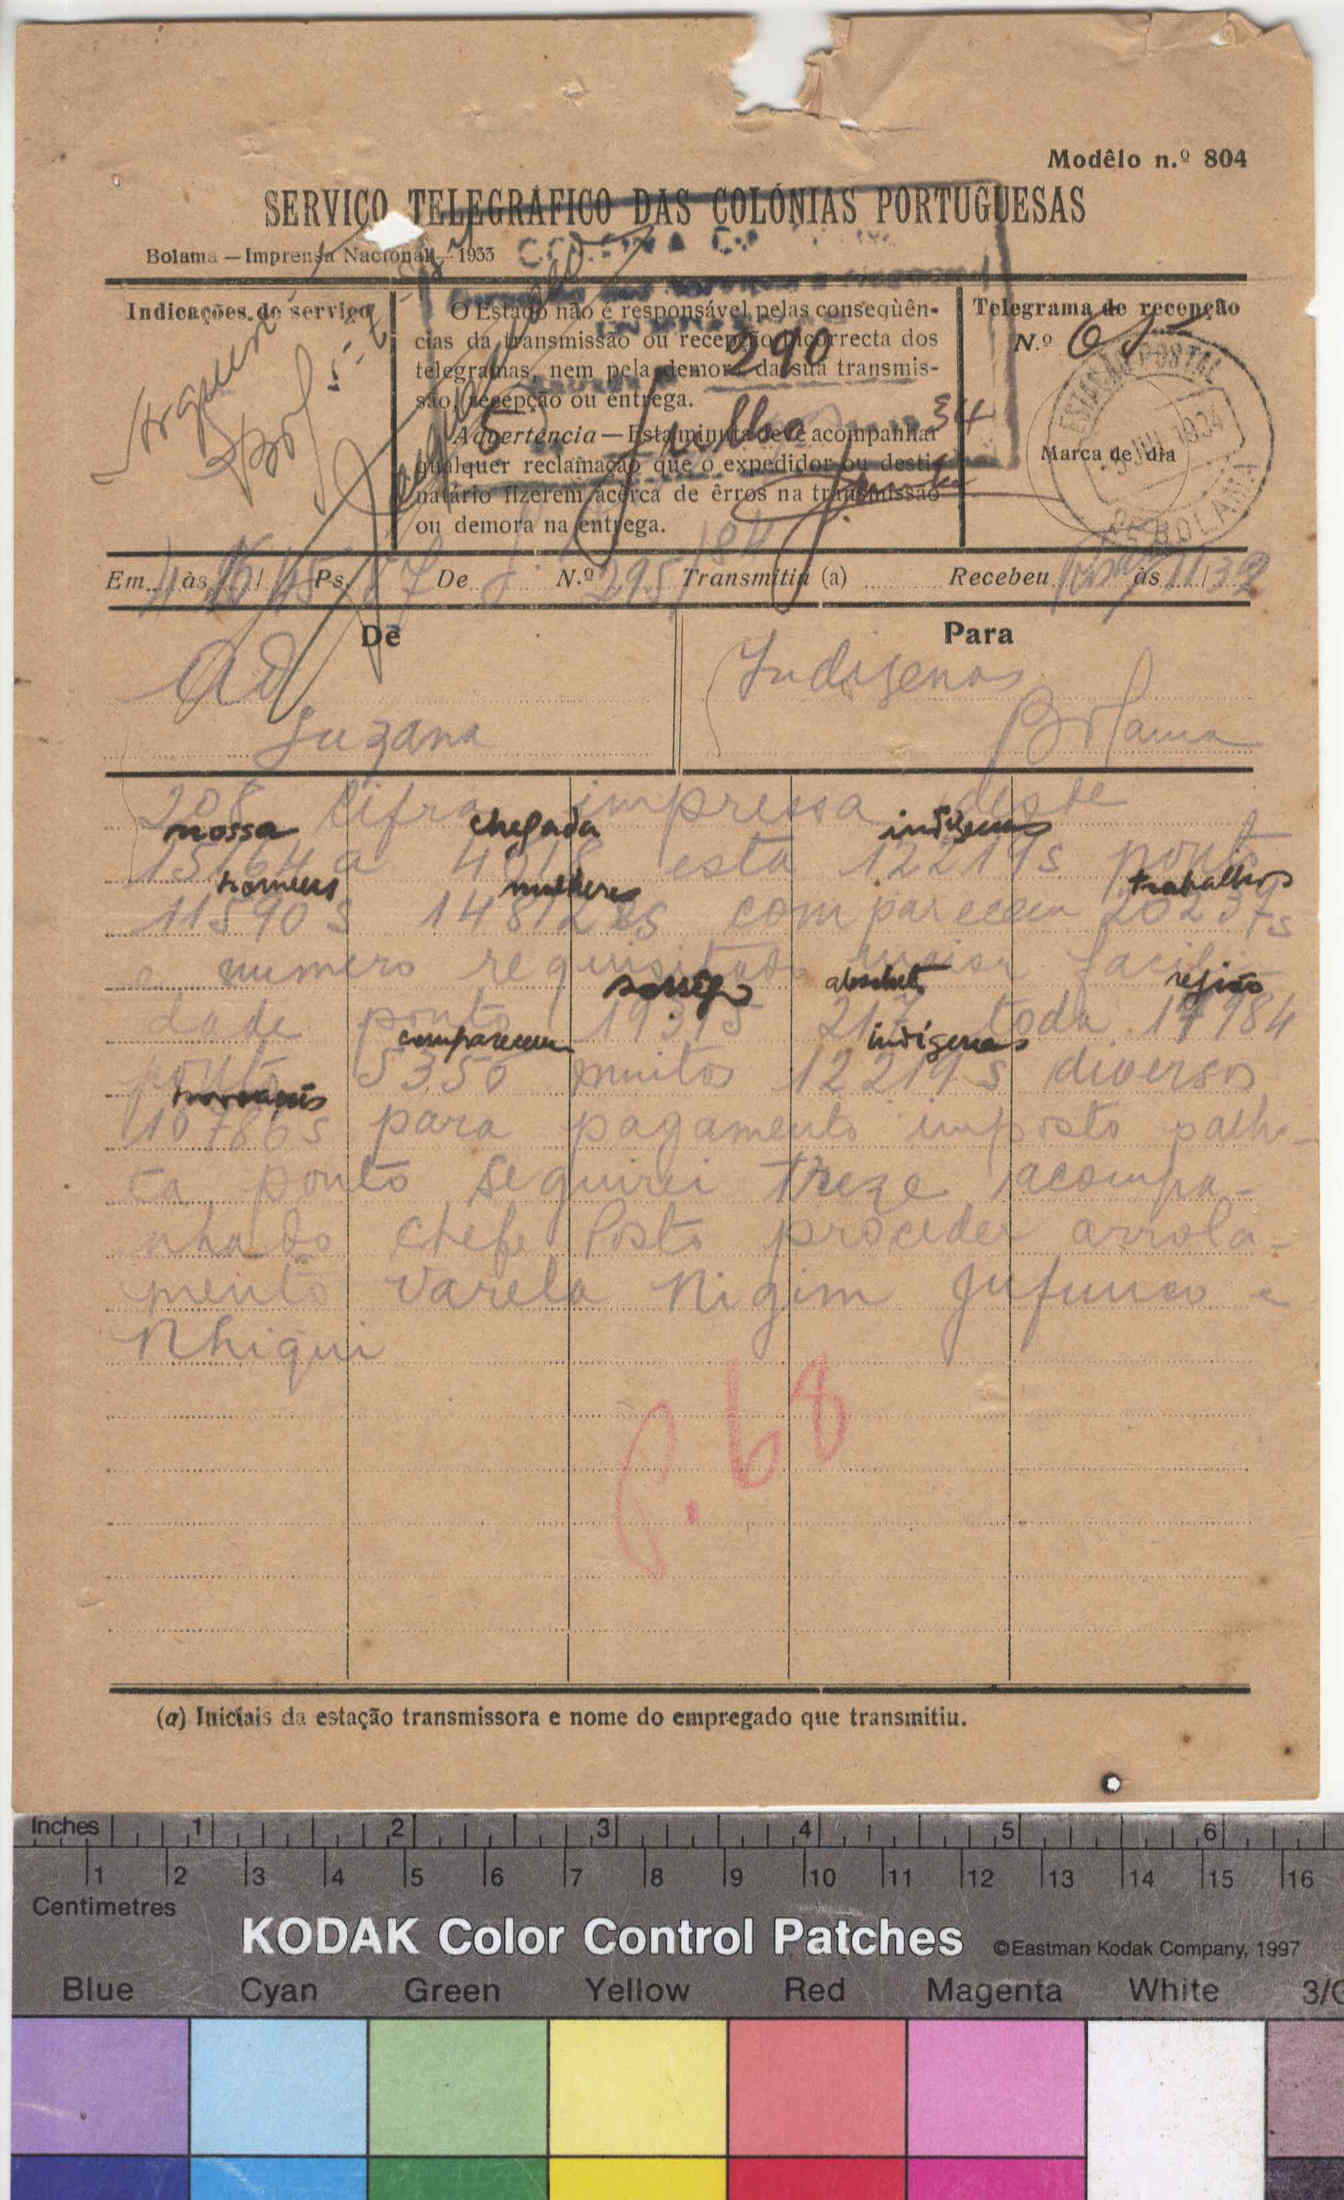 Modêlo n.º 804
SERVIÇO TELEGRÁFICO DAS COLÓNIAS PORTUGUESAS
Bolama — Imprensa Nacional — 1933
Indicações de serviço
O Estado não é responsável pelas conseqüên-
cias da transmissão ou recepção incorrecta dos
telegramas, nem pela demora da sua transmis-
são, recepção ou entrega.
Advertência — Esta minuta deve acompanhar
qualquer reclamação que o expedidor ou desti-
natário fizerem àcêrca de êrros na transmissão
ou demora na entrega.
290
5 Julho 34
Telegrama de recepção
N.º
Marca de dia
ESTAÇÃO POSTAL
JUL 1934
DE BOLAMA
Em 4 às 15/45 Ps. 67 De N.º 295 Transmitiu (a) Recebeu às 11/39
De
Para
Ad
Indigenas
Suzana
Bolama
208 cifra impressa deste
nossa chegada indígenas
15164 a 4018 esta 12219s ponto
homens mulheres trabalhos
11590s 14812s comparecem 20237s
e numero requisitado maior facili-
sossêgo absoluto região
dade ponto 19315 217 toda 17984
comparecem indígenas
ponto 5350 muitos 12219s diversos
povoações
16786s para pagamento imposto palho-
ta ponto Seguirei treze acompa-
nhado chefe Posto proceder arrola-
mento Varela Nigim Jufunco e
Nhiqui
P. 68
(a) Iniciais da estação transmissora e nome do empregado que transmitiu.
Inches 1 2 3 4 5 6
1 2 3 4 5 6 7 8 9 10 11 12 13 14 15 16
Centimetres
KODAK Color Control Patches ©Eastman Kodak Company, 1997
Blue Cyan Green Yellow Red Magenta White